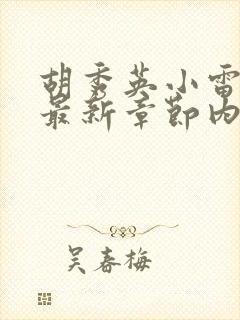 胡秀英小雷
最新章节内
吴春梅